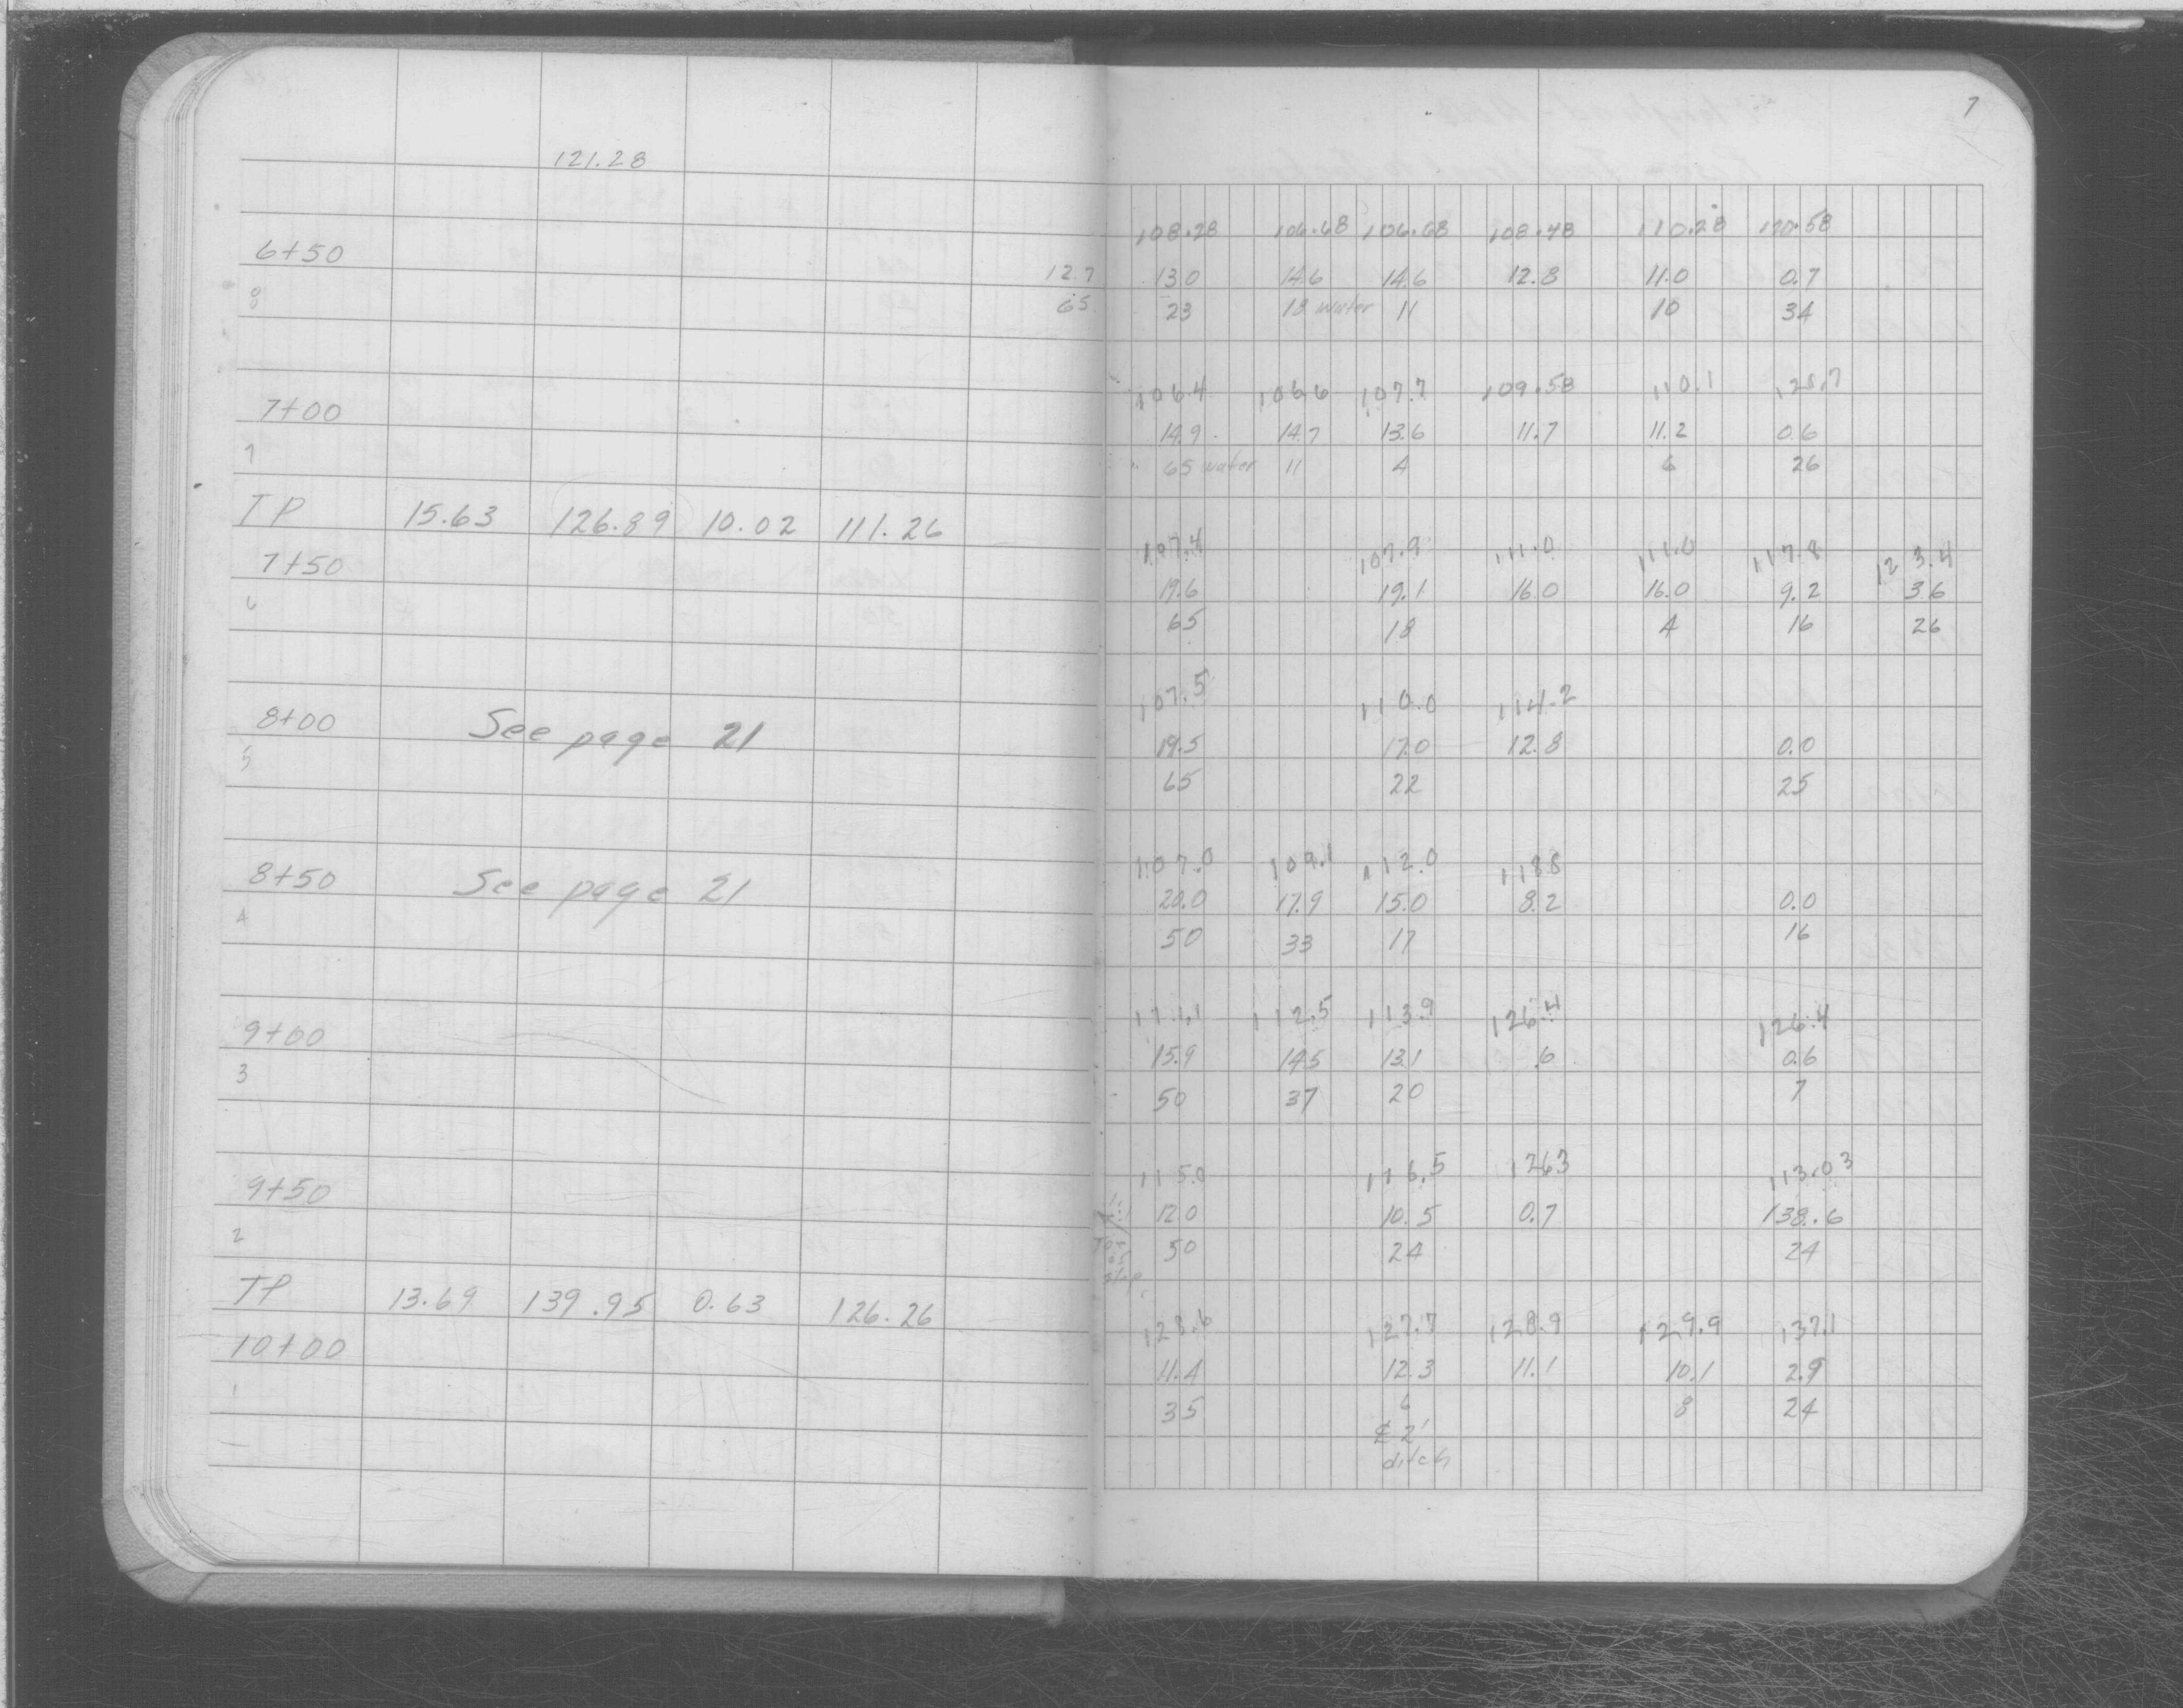 7
121.28
108.28 106.68 106.68 108.48 110.28 120.58
6+50
12.7 13.0 14.6 14.6 12.8 11.0 0.7
8 65 23 18 water 11 10 34
106.4 106.6 107.7 109.58 110.1
7+00
14.9 14.7 13.6 11.7 11.2 0.6
7 65 water 11 4 6 26
TP 15.63 126.89 10.02 111.26
107.4 107.9 111.0 111.0 117.8 123.4
7+50
19.6 19.1 16.0 16.0 9.2 3.6
6 65 18 4 16 26
107.5 110.0 114.2
8+00 See page 21
19.5 17.0 12.8 0.0
5 65 22 25
107.0 109.1 112.0 118.8
8+50 See page 21
20.0 17.9 15.0 8.2 0.0
4 50 33 17 16
111.1 112.5 113.9 126.4 126.4
9+00
15.9 14.5 13.1 .6 0.6
3 50 37 20 7
115.0 116.5 126.3 113.03
9+50
12.0 10.5 0.7 138.6
2 50 24 24
TP 13.69 139.95 0.63 126.26
128.6 127.7 128.9 129.9 137.1
10+00
11.4 12.3 11.1 10.1 2.9
1 35 6 8 24
℄ 2'
ditch